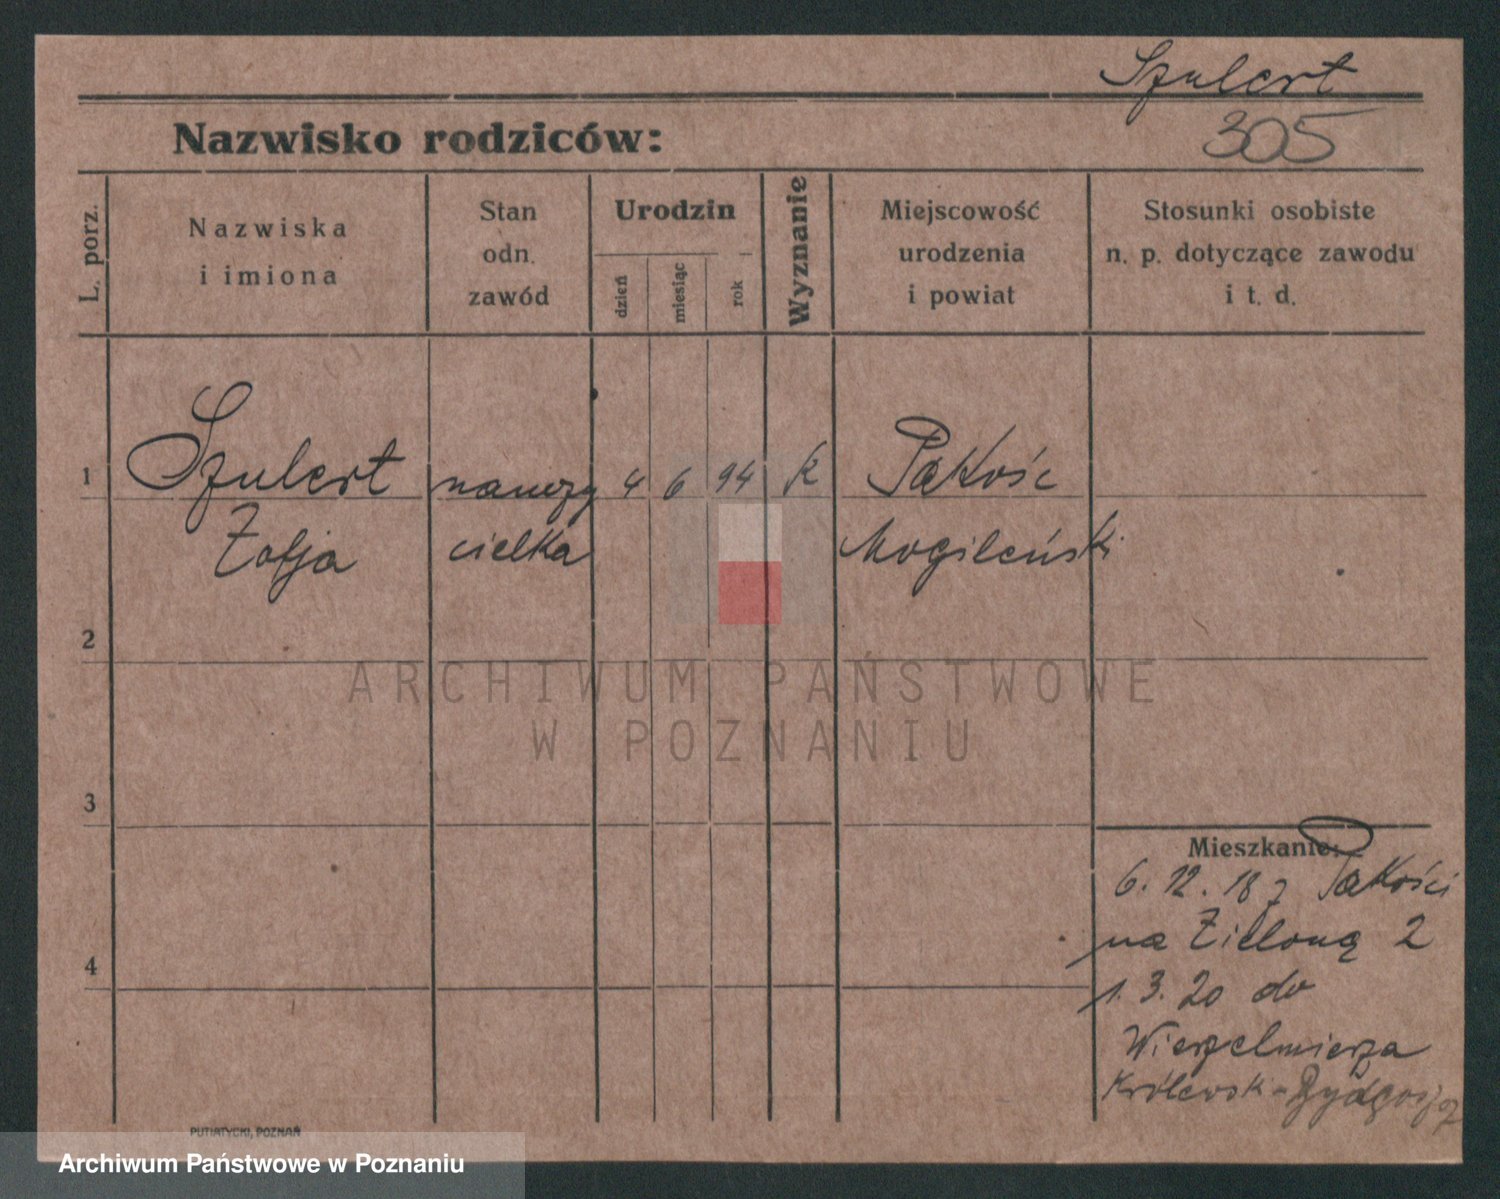 Szulert
Nazwisko rodziców:
305
L. porz.
Nazwiska
i imiona
Stan
odn.
zawód
Urodzin
dzień
miesiąc
rok
Wyznanie
Miejscowość
urodzenia
i powiat
Stosunki osobiste
n. p. dotyczące zawodu
i t. d.
1
Szulert nauczy 4 6 94 k Pakość
Zofja cielka Mogileński
2
ARCHIWUM PAŃSTWOWE
W POZNANIU
3
Mieszkanie:
6. 12. 18 z Pakości
na Zieloną 2
4
1. 3. 20 do
Wierzelmierza
PUTIATYCKI, POZNAŃ
Archiwum Państwowe w Poznaniu